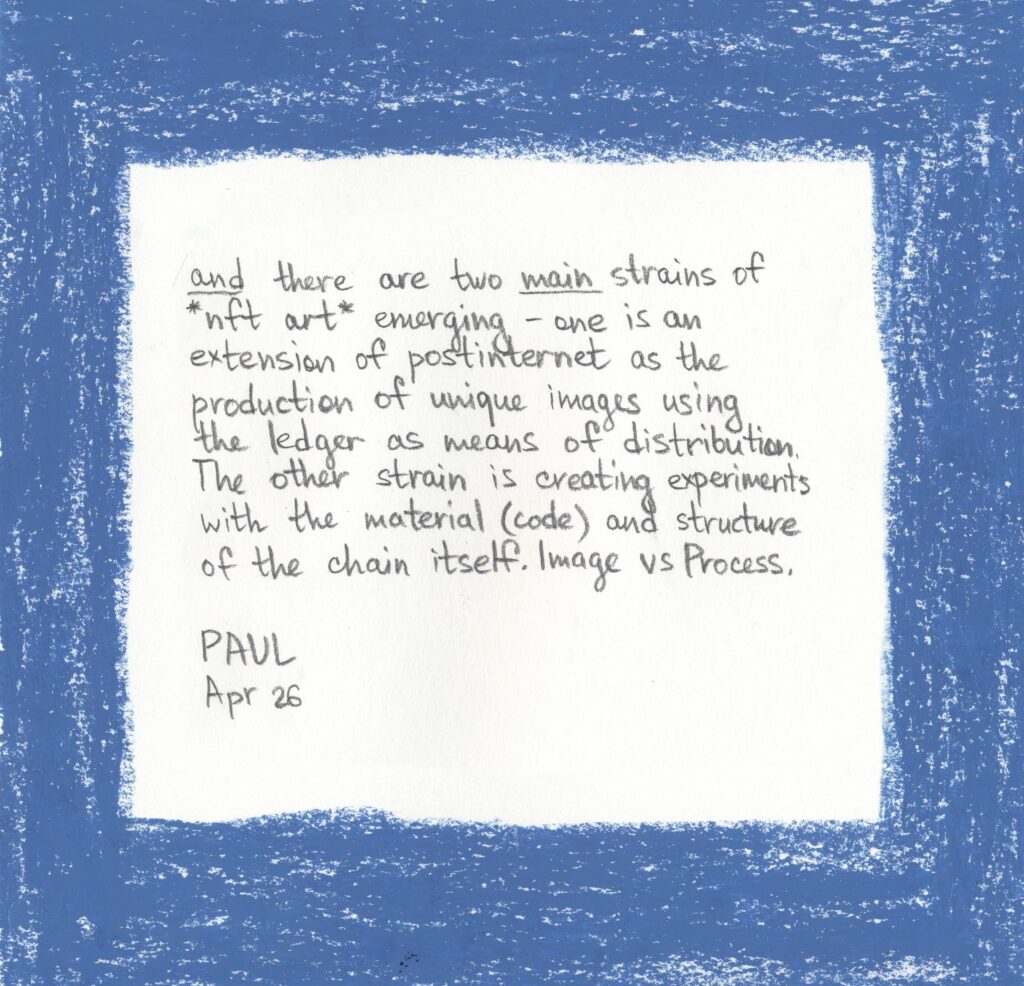 and there are two main strains of
*nft art* emerging - one is an
extension of postinternet as the
production of unique images using
the ledger as means of distribution.
The other strain is creating experiments
with the material (code) and structure
of the chain itself. Image vs Process.
PAUL
Apr 26